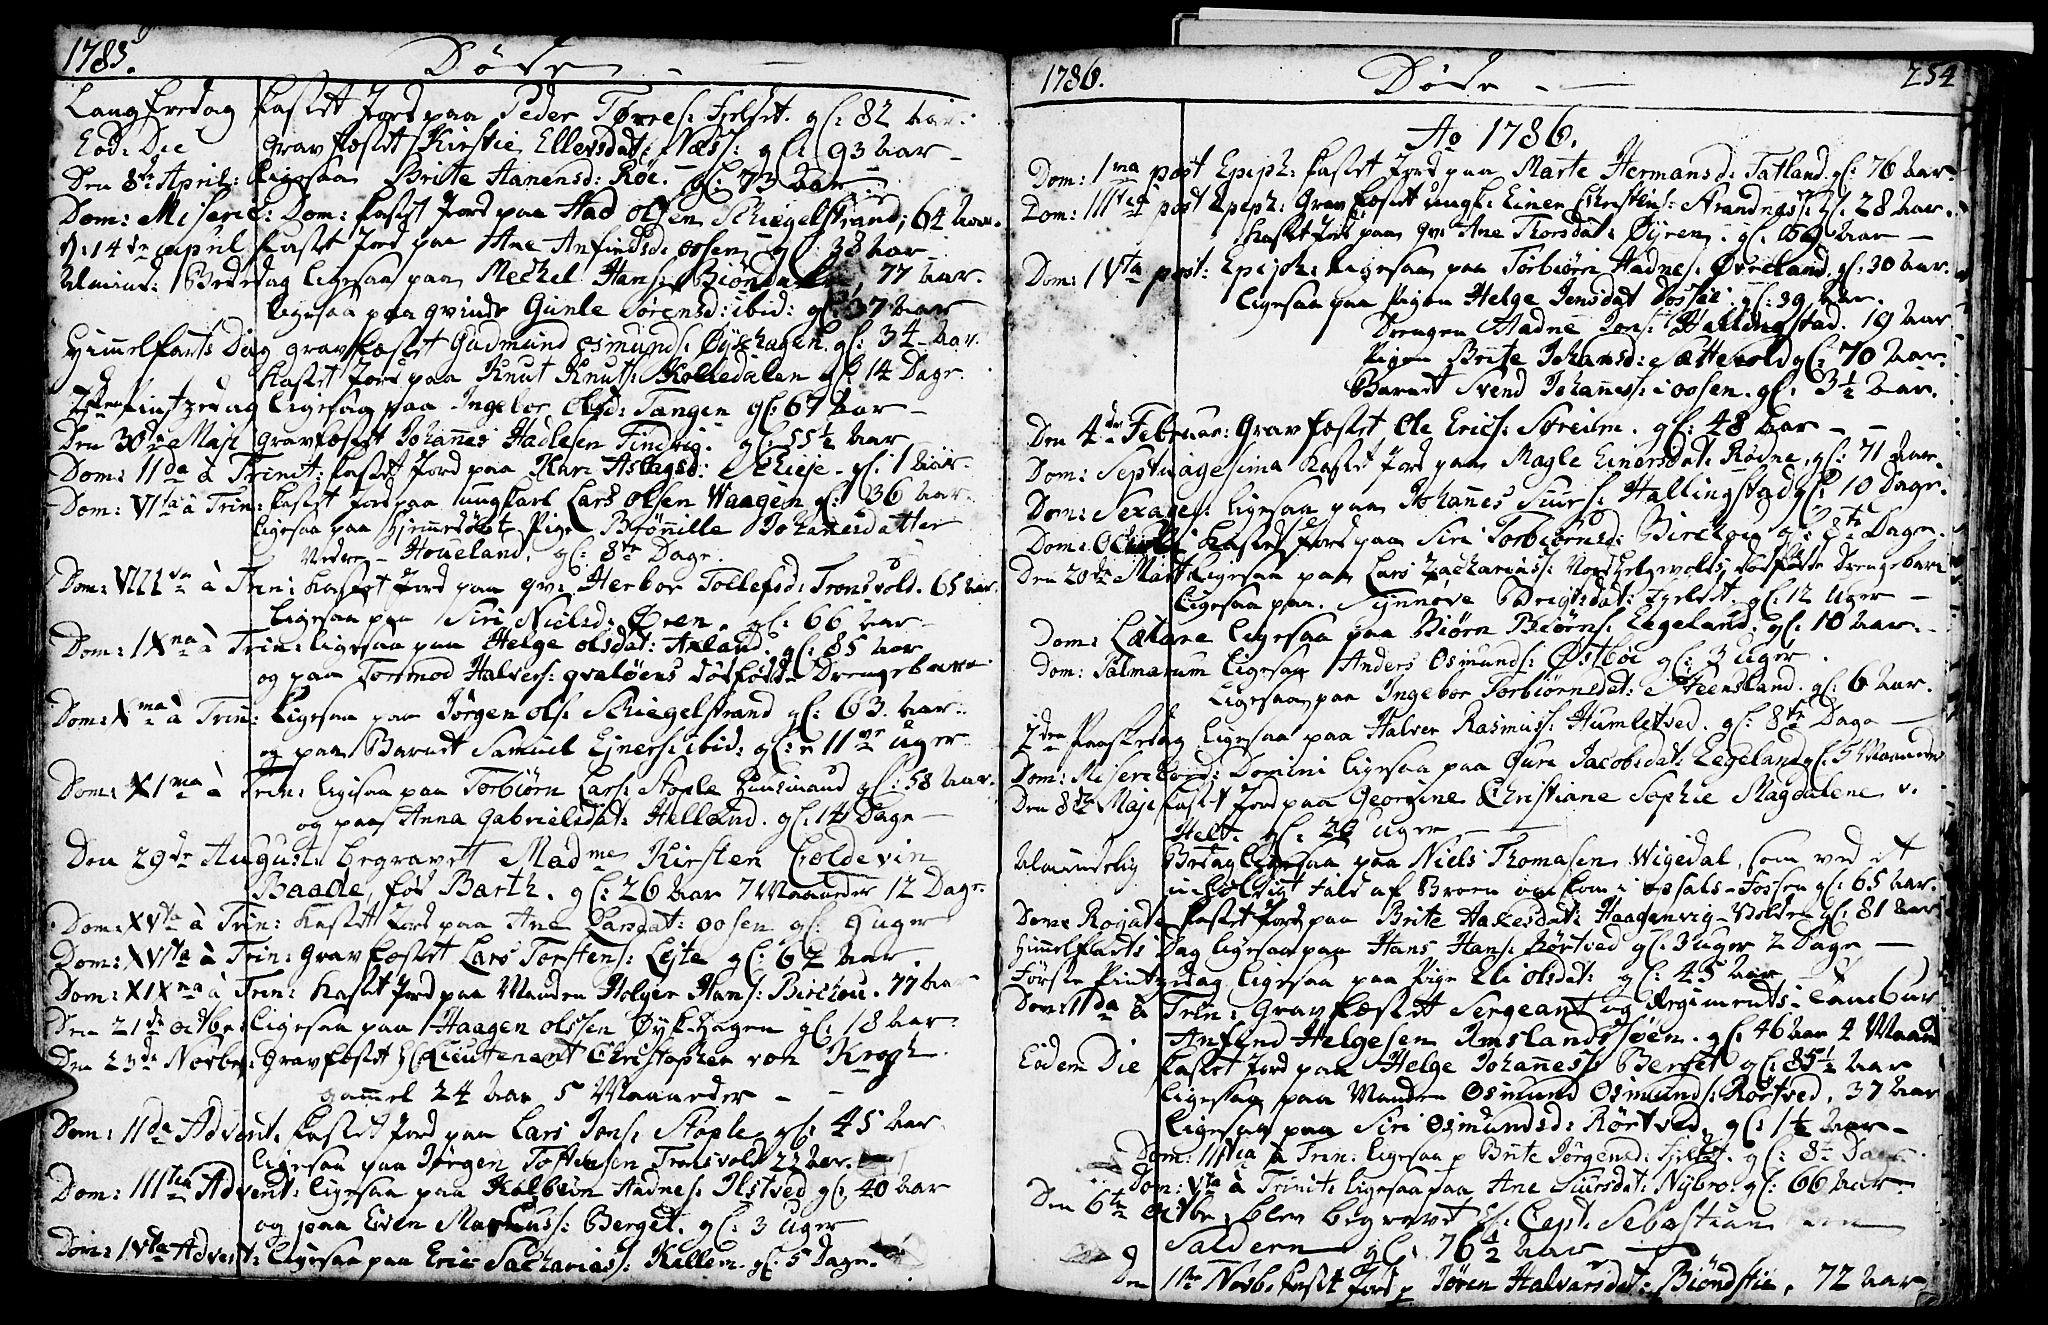 1785.
Døde
Langfredag kastet Jord paa Peder Tørres: Fjelset. gl: 82 Aar.
Eod: Die Gravfæstet Kirstie Ellevsdat: Næss: gl: 93 Aar
Den 8de April: ligesaa Brite Hanensd: Røe. gl: 73 Aar
Dom: Miseric: Dom: kastet Jord paa Aad Olsen Schiegelstrand, 64 Aar.
d. 14de April kastet Jord paa Ane Anfindsd: Oosen gl: 38 Aar
Almind: Bededag ligesaa paa Meckel Hans: 77 Aar.
ligesaa paa qvinde Gunle Sørensd: ibid: gl: 37 Aar
Himmelfarts Dag gravfæstet Gudmund Osmunds: Øyghagen. gl: 34 Aar.
kastet Jord paa Knut Knuts: Kolledalen gl: 14 Dage.
2den Pintzedag ligesaa paa Ingebor Olsd: Tangen gl: 67 Aar
Den 30de Maji gravfæstet Johannes Hadlesen Tindvig. gl: 55½ Aar
Dom: IIda à Trinit: kastet Jord paa Kari Aslagsd: gl: 1 Aar.
Dom: VIta à Trin: kastet Jord paa ungkarl Lars Olsen Waagen gl: 36 Aar
ligesaa paa hjemmedøbt Pige Brønnille Johannesdatter
Nedre Houeland. gl: 8te Dage.
Dom: VIIIva à Trin: kastet Jord paa qv: Herbor Tollefsd: Tronsvold. 65 Aar.
ligesaa paa Siri Nielsd: Øren. gl: 66 Aar
Dom: IXna à Trin: ligesaa paa Helge Olsdat: Axland. gl: 85 Aar
og paa Tormod Halvers: qvaløens dødfødde Drengebarn
Dom: Xma à Trin: ligesaa paa Jørgen Ols: Schiegelstrand gl: 63. Aar.
og paa Barnet Samuel Ejners: ibid: gl: 11 Uger
Dom: XIma à Trin: ligesaa paa Torbiørn Lars: Stople Huusmand gl: 58 Aar.
og paa Anna Gabrielsdat: Helland. gl: 14 Dage
Den 29de August: begravet Madme Kirsten Coldevin
Baade, fød Barth. gl: 26 Aar 7 Maaneder 12 Dage
Dom: XVta à Trin: kastet Jord paa Ane Larsdat: Oosen gl: 9 Uger
Dom: XVIta à Trin: Gravfæstet Lars Torstens: Lejte gl: 62 Aar.
Dom: XIXna à Trin: kastet Jord paa Manden Holger Hans: Birckou. 77 Aar
Den 21de Octbr: ligesaa paa Haagen Olssen Øykhagen gl: 18 Aar.
Den 23de Novbr: Gravfæstet Hr: Lieutenant Christopher von Krogh.
gammel 24 Aar 5 Maaneder
Dom: IIda Advent: kastet Jord paa Lars Jons: Stople gl: 45 Aar.
ligesaa paa Jørgen Tostensen Tronsvold 22 Aar.
Dom: IIItia Advent: ligesaa paa Kolbein Aadnes: Ilstved gl: 40 Aar
og paa Even Markuss: Berget. gl: 3 Uger
Dom: IVta Advent: ligesaa paa Eric Sachariass: Kallem. gl: 5 Dage.
1786.
Døde
254
Ao 1786.
Dom: 1ma post Epiph: kastet Jord paa Marte Hermansd: Tatland. gl: 76 Aar.
Dom: IIItia post Epiph: Gravfæstet ungk: Einer Christens: gl: 28 Aar.
kastet Jord paa qv: Ane Thorsdat: Øyren. gl: 69 Aar
Dom: IVta post: Epiph: ligesaa paa Torbiørn Hadnes: Øvreland. gl: 30 Aar.
ligesaa paa Pigen Helge Jensdat gl: 39 Aar.
Drengen Aadne Jons: Hallingstad. 19 Aar
Pigen Brite Johansd: Sættevold gl: 70 Aar.
Barnet Svend Johanness: i Oosen. gl: 3½ Aar.
Den 4de Februar: Gravfæstet Ole Erics: Streilm. gl: 48 Aar
Dom: Septuagesima kastet Jord paa Magle Einersdat: Rødne. gl: 71 Aar.
Dom: Sexages: ligesaa paa Johannes Siurs: Hallingstad gl: 10 Dage.
Dom: Oculi kastet Jord paa Siri Torbiørnsd: Birckou gl: 8te Dage.
Den 20de Mart ligesaa paa Lars Zachariass: Nordhelgevolds dødfødde Drengebarn
ligesaa paa. Synnøve Brigtsdat: Fjelset. gl: 12 Uger
Dom: Lætare ligesaa paa Biørn Biørns: Eegeland. gl: 10 Aar.
Dom: Palmarum ligesaa Anders Osmunds: Østbøe gl: 3 Uger.
ligesaa paa Ingebor Torbiørnsdat: Steensland. gl: 6 Aar.
2den Paaskedag ligesaa paa Halver Rasmuss: Humletved. gl: 8te Dage
Dom: Misericord: Domini ligesaa paa Guri Jacobsdat: Eegeland gl: 5 Maaneder
Den 8de Maji kastet Jord paa Georgine Christiane Sophie Magdalene v.
Helt. gl: 20 Uger
Almindelig Bededag ligesaa paa Niels Thomasen Wigedal, som ved et
u-heldigt fald af Broen omkom i Opsals-Fossen gl: 65 Aar.
Dom: Rogate kastet Jord paa Brite Hakesdat: Haagenvig-Volden gl: 81 Aar
Himmelfarts Dag ligesaa paa Hans Hans: Rørtved gl: 3 Uger 2 Dage
Første Pintzedag ligesaa paa Pige Eli Olsdat: gl: 45 Aar
Dom: IIda à Trin: Gravfæstet Sergeant og Regiments-Tambur
Anfind Helgesen Amslandssøen. gl: 46 Aar 4 Maan
Eodem Die kastet Jord paa Helge Johanness: Berget gl: 85½ Aar
ligesaa paa Manden Osmund Osmunds: Rørtved, 37 Aar
ligesaa paa Siri Osmundsd: Rørtved. gl: 1½ Aar
Dom: IIItia à Trin: ligesaa p Brite Jørgensd: Fjelset. gl: 8te Dage.
Dom: Vta à Trinit: ligesaa paa Ane Siursdat: Nybro: gl: 66 Aar.
Den 6te Octbr: blev begravet Hr: Capt: Sebastian von
Saldern gl: 76½ Aar
Den 11te Novb: kastet Jord p Jøren Halvarsdat: Biøndstie, 72 Aar